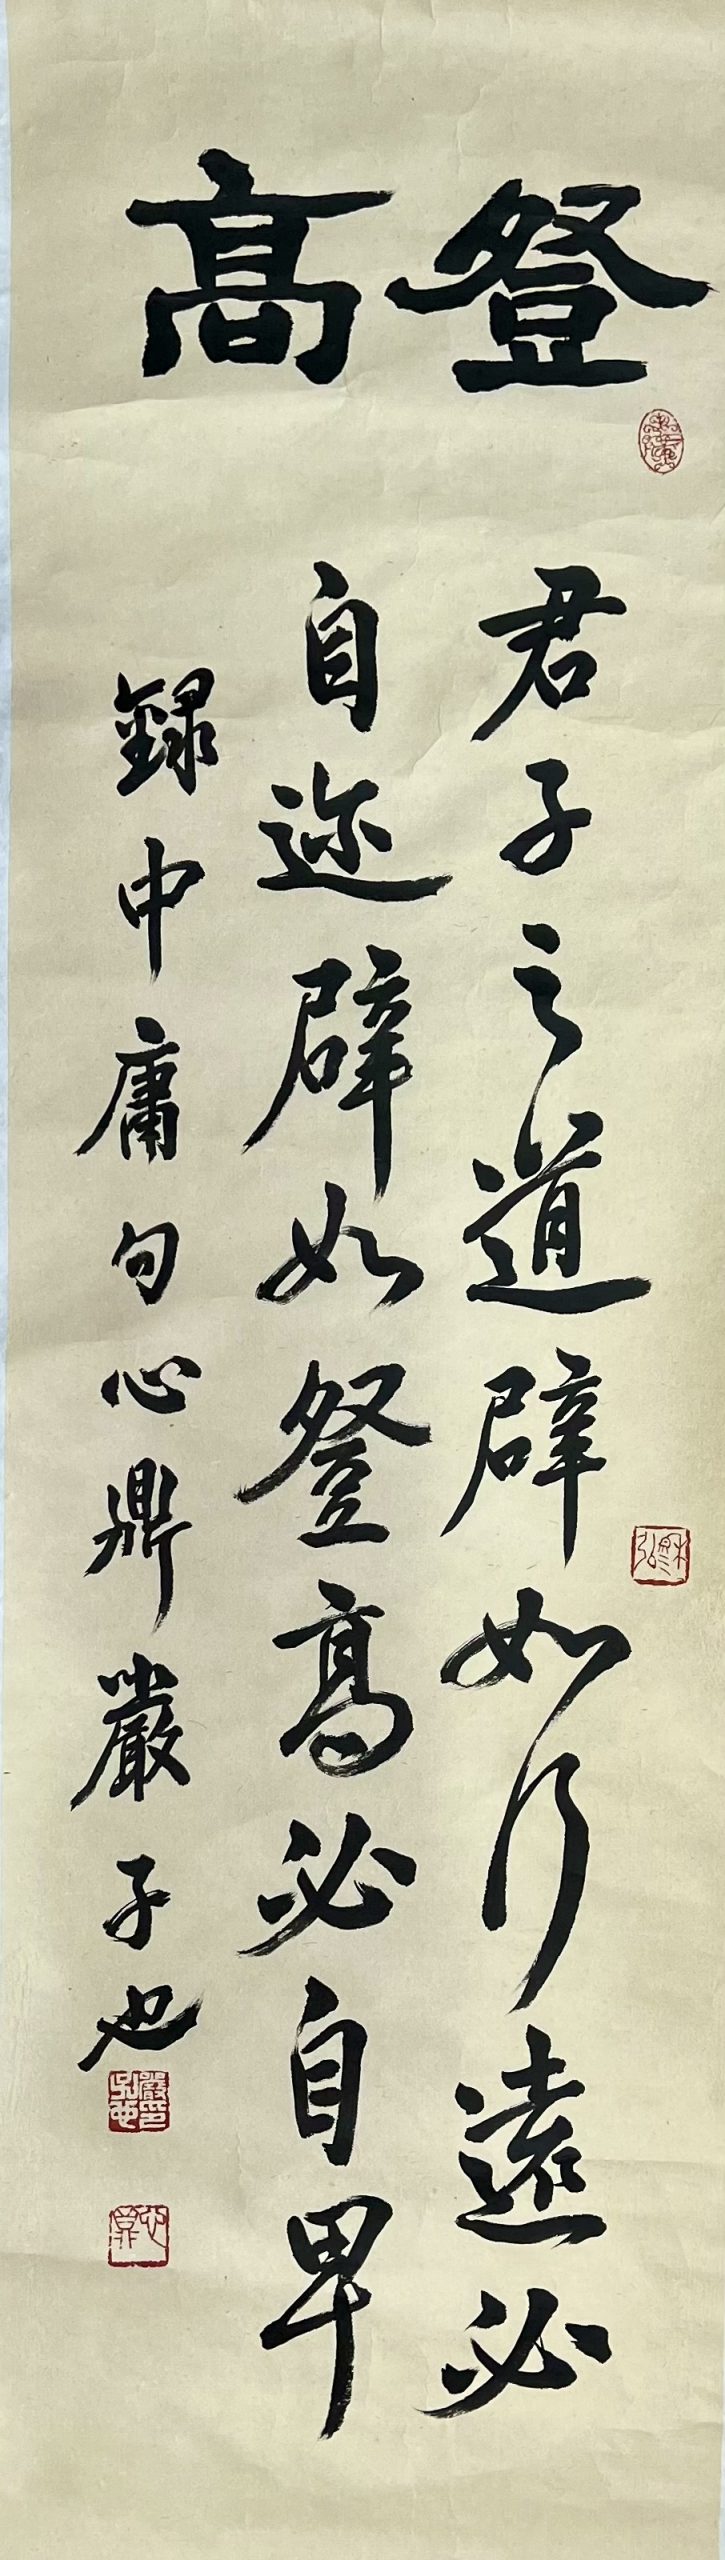 登高
君子之道辟如行遠必
自迩辟如登高必自卑
録中庸句心鼎嚴子也